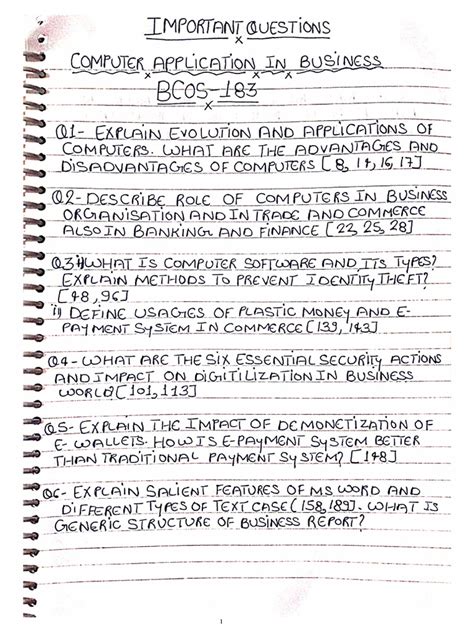 IMPORTANT QUESTIONS
COMPUTER APPLICATION IN BUSINESS
BCOS-183
Q1- EXPLAIN EVOLUTION AND APPLICATIONS OF
COMPUTERS. WHAT ARE THE ADVANTAGES AND
DISADVANTAGES OF COMPUTERS [8, 14, 16, 17]
Q2- DESCRIBE ROLE OF COMPUTERS IN BUSINESS
ORGANISATION AND IN TRADE AND COMMERCE
ALSO IN BANKING AND FINANCE [22, 25, 28]
Q.3 i) WHAT IS COMPUTER SOFTWARE AND ITS TYPES?
EXPLAIN METHODS TO PREVENT IDENTITY THEFT?
[48, 96]
ii) DEFINE USAGES OF PLASTIC MONEY AND E-
PAYMENT SYSTEM IN COMMERCE [139, 143]
Q4- WHAT ARE THE SIX ESSENTIAL SECURITY ACTIONS
AND IMPACT ON DIGITILIZATION IN BUSINESS
WORLD [101, 113]
Q.5- EXPLAIN THE IMPACT OF DEMONETIZATION OF
E-WALLETS. HOW IS E-PAYMENT SYSTEM BETTER
THAN TRADITIONAL PAYMENT SYSTEM? [148]
Q6- EXPLAIN SALIENT FEATURES OF MS WORD AND
DIFFERENT TYPES OF TEXT CASE (158, 189]. WHAT IS
GENERIC STRUCTURE OF BUSINESS REPORT?
1